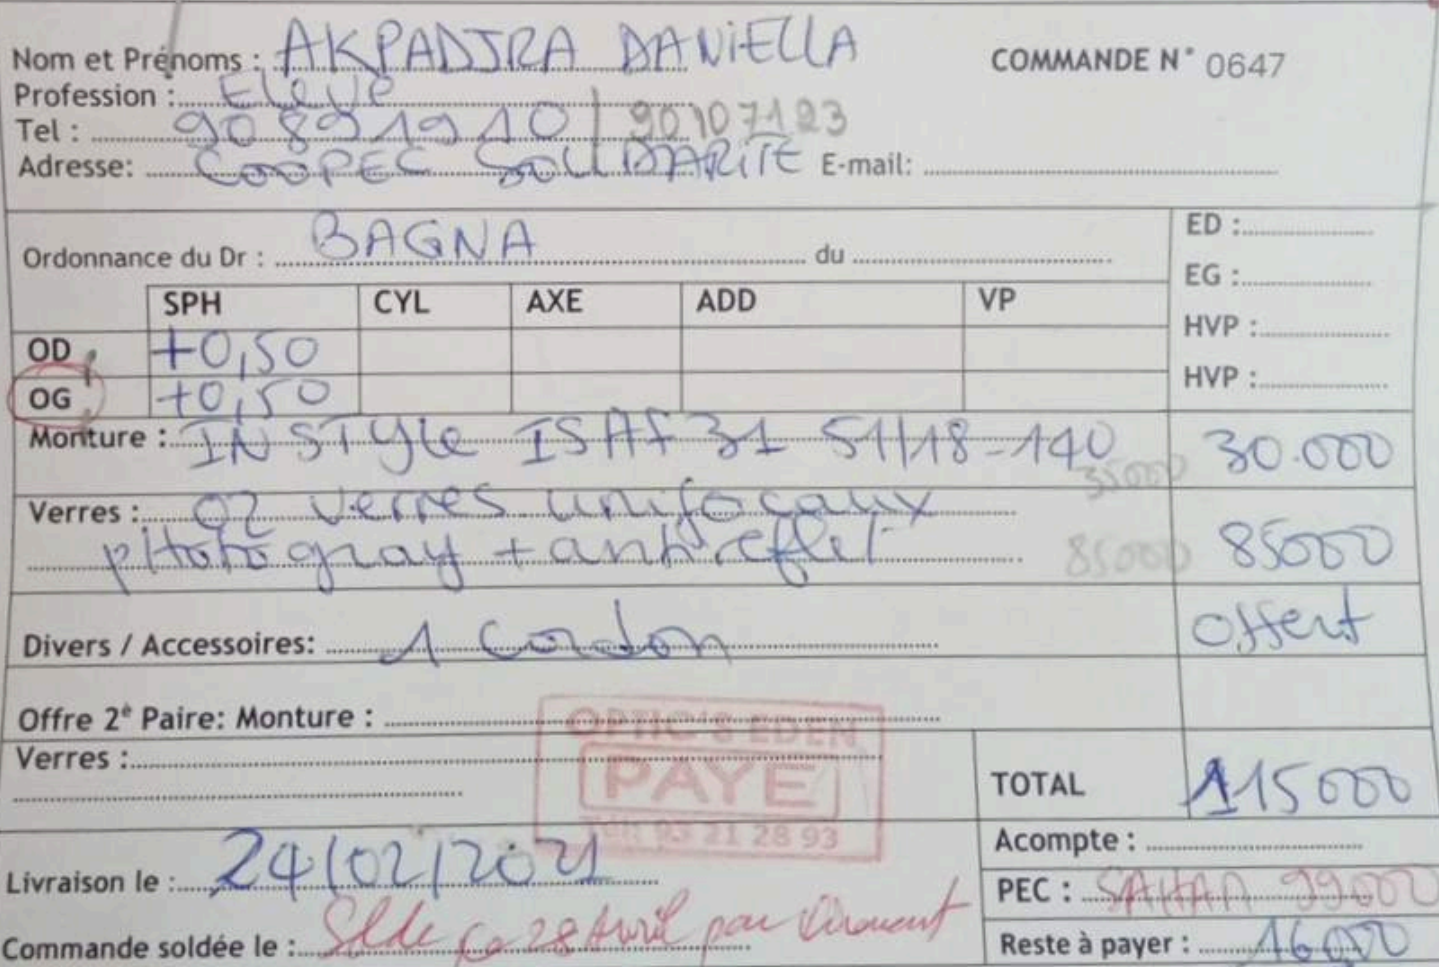 Nom et Prénoms : AKPADJRA DANIELLA
COMMANDE N° 0647
Profession : Elève
Tel : 90 89 19 10 / 90107123
Adresse: COOPEC SOLIDARITE E-mail:
Ordonnance du Dr : BAGNA du
ED :
EG :
HVP :
HVP :
SPH CYL AXE ADD VP
OD +0,50
OG +0,50
Monture : INSTYle ISAF31 51/18-140 35000 30.000
Verres : 02 verres unifocaux
photogray + antireflet 85000 85000
Divers / Accessoires: 1 Cordon Offert
Offre 2e Paire: Monture :
Verres :
OPTIC'S EDEN
PAYE
Tél: 93 21 28 93
TOTAL 115000
Acompte :
Livraison le : 24/02/2021
PEC : SAHAM 99000
Commande soldée le : Solde ce 28 Avril par Virement
Reste à payer : 16000